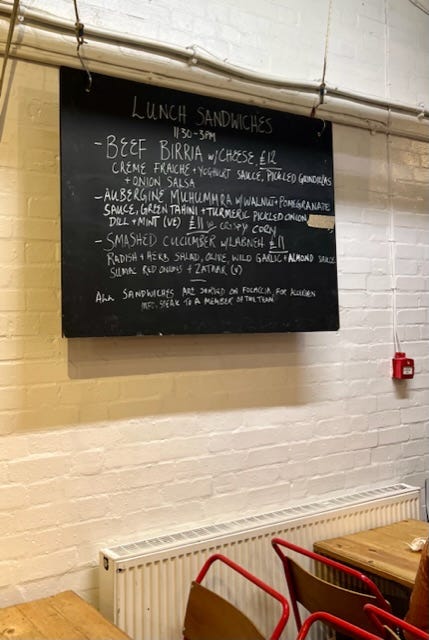 LUNCH SANDWICHES
11:30-3PM
- BEEF BIRRIA W/CHEESE £12
CRÈME FRAICHE + YOGHURT SAUCE, PICKLED GUINDILLAS
+ ONION SALSA
- AUBERGINE MUHUMMRA W/WALNUT + POMEGRANATE
SAUCE, GREEN TAHINI + TURMERIC PICKLED ONION
DILL + MINT (VE) £11 CRISPY CORN
- SMASHED CUCUMBER W/LABNEH £11
RADISH + HERB SALAD, OLIVE, WILD GARLIC + ALMOND SAUCE
SUMAC RED ONIONS + ZATAAR (V)
ALL SANDWICHES ARE SERVED ON FOCACCIA, FOR ALLERGEN
INFO, SPEAK TO A MEMBER OF THE TEAM